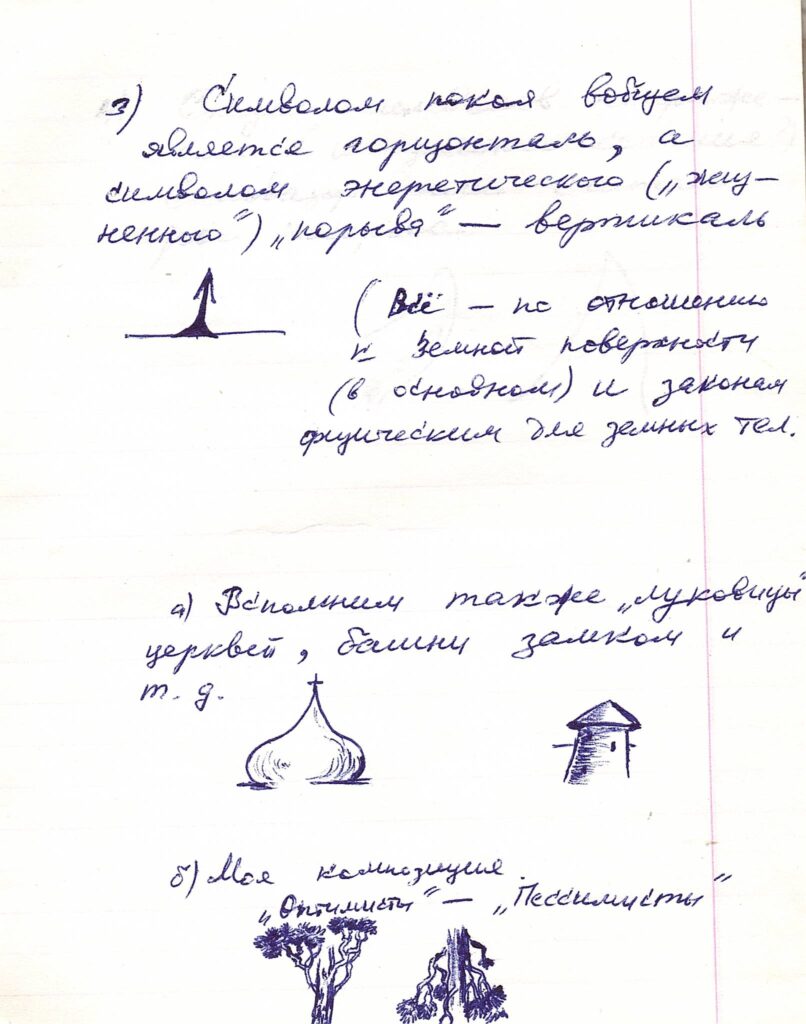 3) Символом покоя вобщем
является горизонталь, а
символом энергетического („жиз-
ненного“) „порыва“ — вертикаль
(Всё — по отношению
к земной поверхности
(в основном) и законам
физическим для земных тел.
а) Вспомним также „луковицы“
церквей, башни замком и
т. д.
б) Моя композиция.
„Оптимисты“ — „Пессимисты“